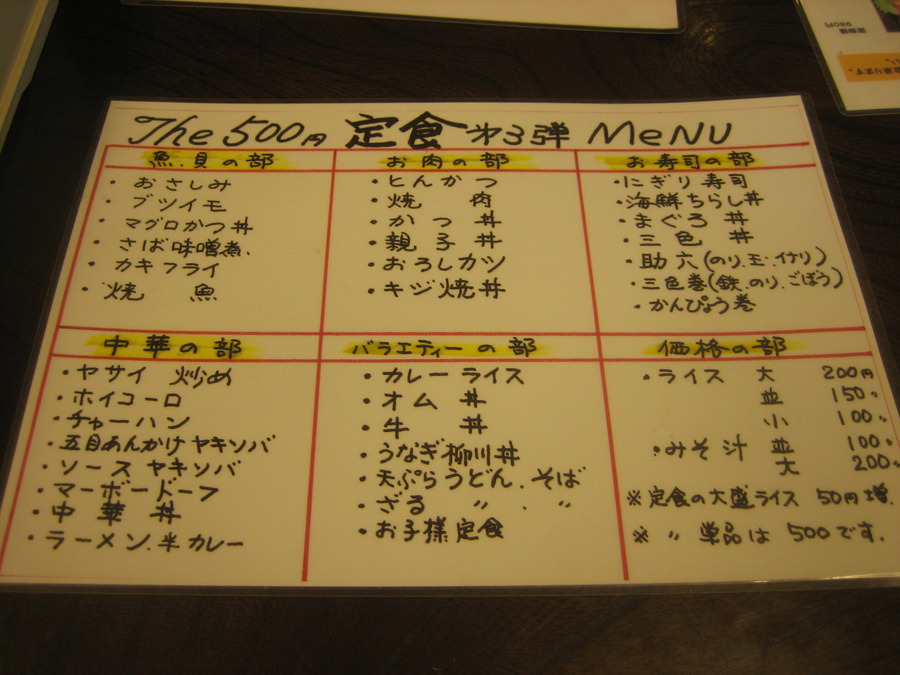 The 500円 定食 オ3弾 MeNU
魚.貝の部
・おさしみ
・ブツイモ
・マグロかつ丼
・さば味噌煮.
・カキフライ
・焼 魚
お肉の部
・とんかつ
・焼 肉
・かつ丼
・親子丼
・おろしカツ
・キジ焼丼
お寿司の部
・にぎり寿司
・海鮮ちらし丼
・まぐろ丼
・三色丼
・助六(のり.玉.イナリ)
・三色巻(鉄.のり.ごぼう)
・かんぴょう巻
中華の部
・ヤサイ炒め
・ホイコーロ
・チャーハン
・五目あんかけヤキソバ
・ソースヤキソバ
・マーボードーフ
・中華丼
・ラーメン.半カレー
バラエティーの部
・カレーライス
・オム丼
・牛 丼
・うなぎ柳川丼
・天ぷらうどん.そば
・ざる 〃 . 〃
・お子様定食
価格の部
・ライス 大 200円
並 150〃
小 100〃
・みそ汁 並 100〃
大 200〃
※定食の大盛ライス 50円増.
※ 〃 単品は 500です.
980円